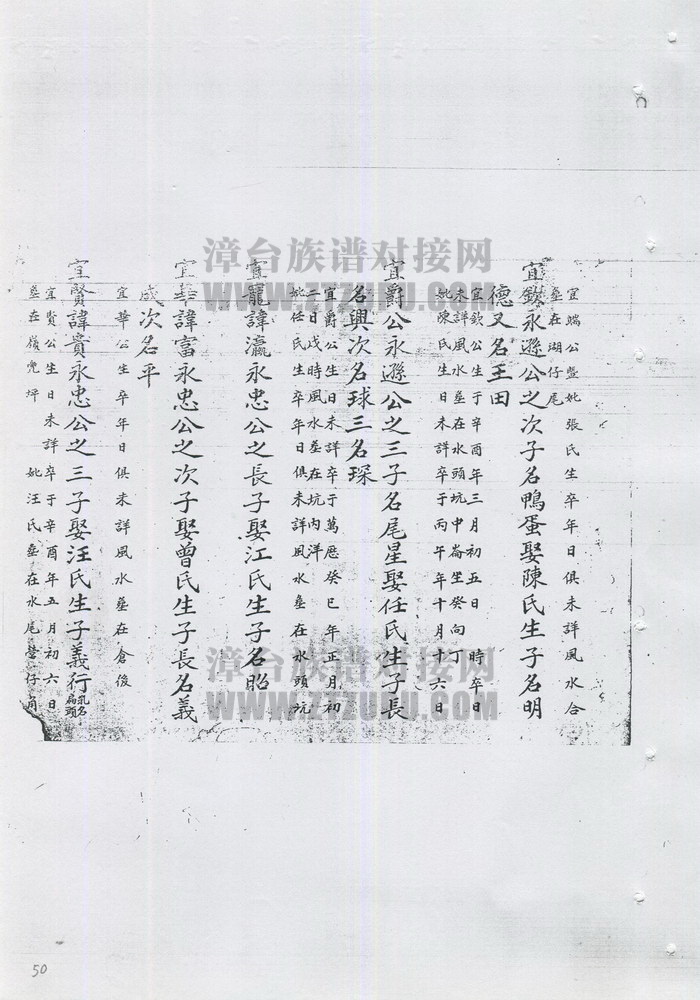 宜端公暨妣張氏生卒年日俱未詳風水合
塟在湖仔尾
宜欽永遜公之次子名鴨蛋娶陳氏生子名明
德又名王田
宜欽公生于辛酉年三月初五日時卒日
未詳風水塟在水頭坑中崙坐癸向丁
妣陳氏生日未詳卒于丙午年十月十六日
宜爵公永遜公之三子名尾星娶任氏生子長
名興次名球三名琛
宜爵公生日未詳卒于萬历癸巳年正月初
二日戌時風水塟在坑内洋
妣任氏生卒年日俱未詳風水塟在水頭坑
宜寵諱瀛永忠公之長子娶江氏生子名昭
宜華諱富永忠公之次子娶曾氏生子長名義
成次名平
宜華公生卒年日俱未詳風水塟在倉後
宜賢諱貴永忠公之三子娶汪氏生子義行乳名扁頭
宜賢公生日未詳卒于辛酉年五月初六日
塟在嶺兜坪 妣汪氏塟在水尾營仔角
漳台族谱对接网
WWW.ZTZUPU.COM
漳台族谱对接网
WWW.ZTZUPU.COM
50